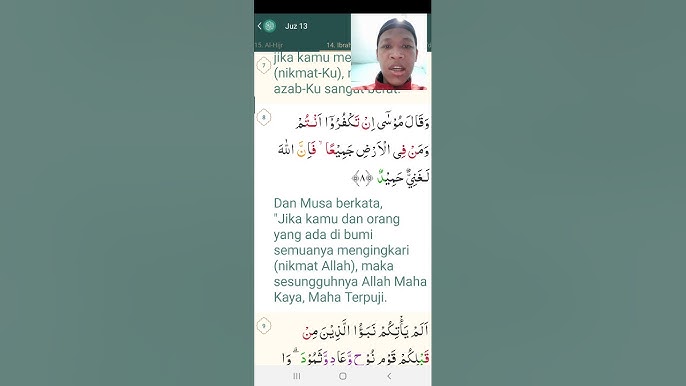 Juz 13
15. Al-Hijr
14. Ibra
7
jika kamu me
(nikmat-Ku),
azab-Ku sangat berat.
8
وَقَالَ مُوْسٰٓى اِنْ تَكْفُرُوْٓا اَنْتُمْ
وَمَنْ فِى الْاَرْضِ جَمِيْعًا ۙ فَاِنَّ اللّٰهَ
لَغَنِيٌّ حَمِيْدٌ ﴿٨﴾
Dan Musa berkata,
"Jika kamu dan orang
yang ada di bumi
semuanya mengingkari
(nikmat Allah), maka
sesungguhnya Allah Maha
Kaya, Maha Terpuji.
9
اَلَمْ يَأْتِكُمْ نَبَؤُا الَّذِيْنَ مِنْ
قَبْلِكُمْ قَوْمِ نُوْحٍ وَّعَادٍ وَّثَمُوْدَ ۗ وَا